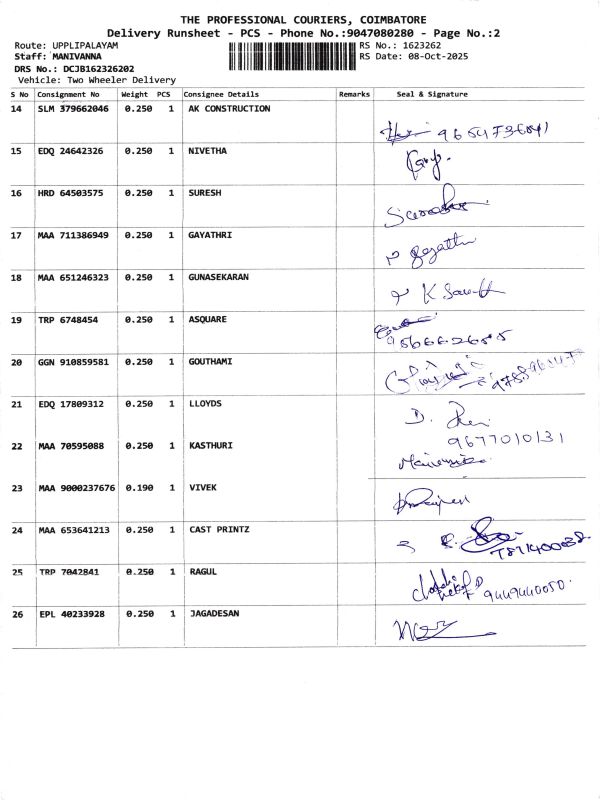 THE PROFESSIONAL COURIERS, COIMBATORE
Delivery Runsheet - PCS - Phone No.:9047080280 - Page No.:2
Route: UPPLIPALAYAM
RS No.: 1623262
Staff: MANIVANNA
RS Date: 08-Oct-2025
DRS No.: DCJB162326202
Vehicle: Two Wheeler Delivery
S No Consignment No Weight PCS Consignee Details Remarks Seal & Signature
14 SLM 379662046 0.250 1 AK CONSTRUCTION
15 EDQ 24642326 0.250 1 NIVETHA
16 HRD 64503575 0.250 1 SURESH
17 MAA 711386949 0.250 1 GAYATHRI
18 MAA 651246323 0.250 1 GUNASEKARAN
19 TRP 6748454 0.250 1 ASQUARE
20 GGN 910859581 0.250 1 GOUTHAMI
21 EDQ 17809312 0.250 1 LLOYDS
D.
9677010131
22 MAA 70595088 0.250 1 KASTHURI
23 MAA 9000237676 0.190 1 VIVEK
24 MAA 653641213 0.250 1 CAST PRINTZ
25 TRP 7042841 0.250 1 RAGUL
9449440050
26 EPL 40233928 0.250 1 JAGADESAN